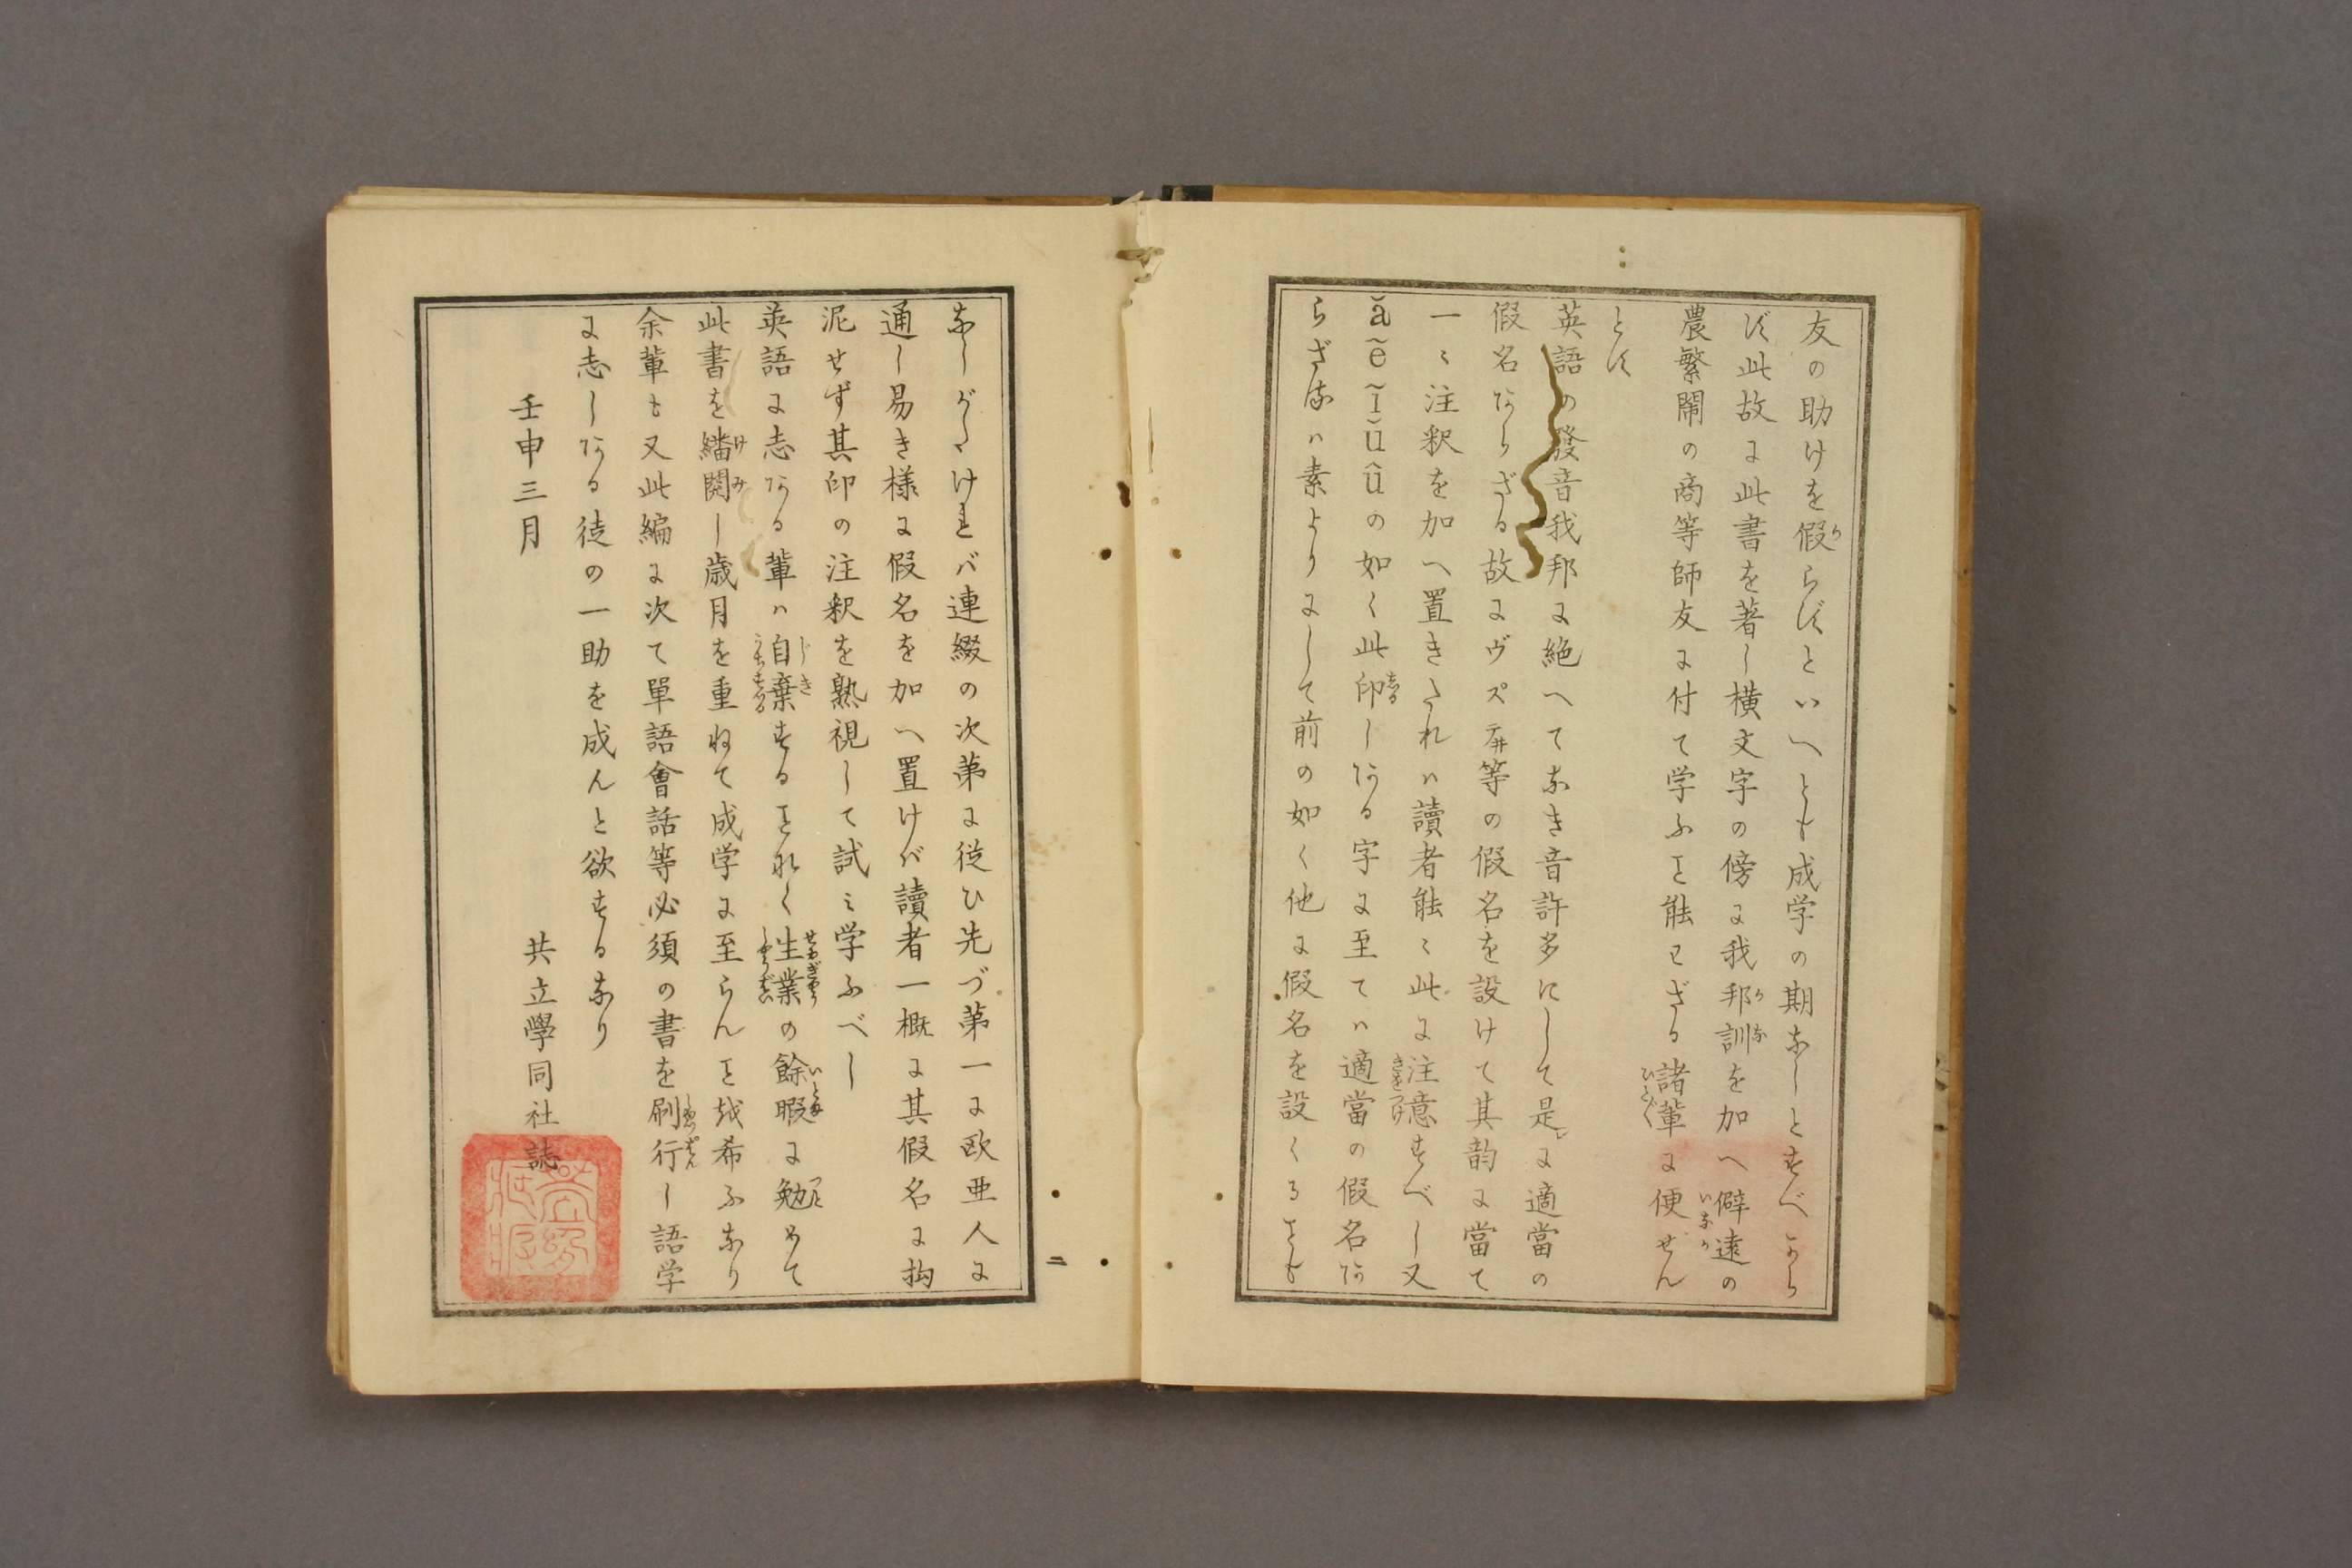 友の助けを假らずといへとも成学の期なしとすべから
ず此故に此書を著し横文字の傍に我邦訓を加へ僻遠の
農繁閙の商等師友に付て学ふヿ能はざる諸輩に便せん
とす
英語の發音我邦に絶へてなき音許多にして是に適當の
假名あらざる故にヴ 等の假名を設けて其韵に當て
一々注釈を加へ置きたれハ讀者能々此に注意すべし又
ă ẽ ĩ ŭ û の如く此印しある字に至てハ適當の假名あ
らざれハ素よりにして前の如く他に假名を設くるヿも
なしがたけれバ連綴の次第に従ひ先づ第一に欧亜人に
通し易き様に假名を加へ置けバ讀者一概に其假名に拘
泥せず其印の注釈を熟視して試ミ学ふべし
英語に志ある輩ハ自棄するヿなく生業の餘暇に勉めて
此書を繙閲し歳月を重ねて成学に至らんヿを希ふなり
余輩も又此編に次て單語會話等必須の書を刷行し語学
に志しある徒の一助を成んと欲するなり
壬申三月
共立學同社誌